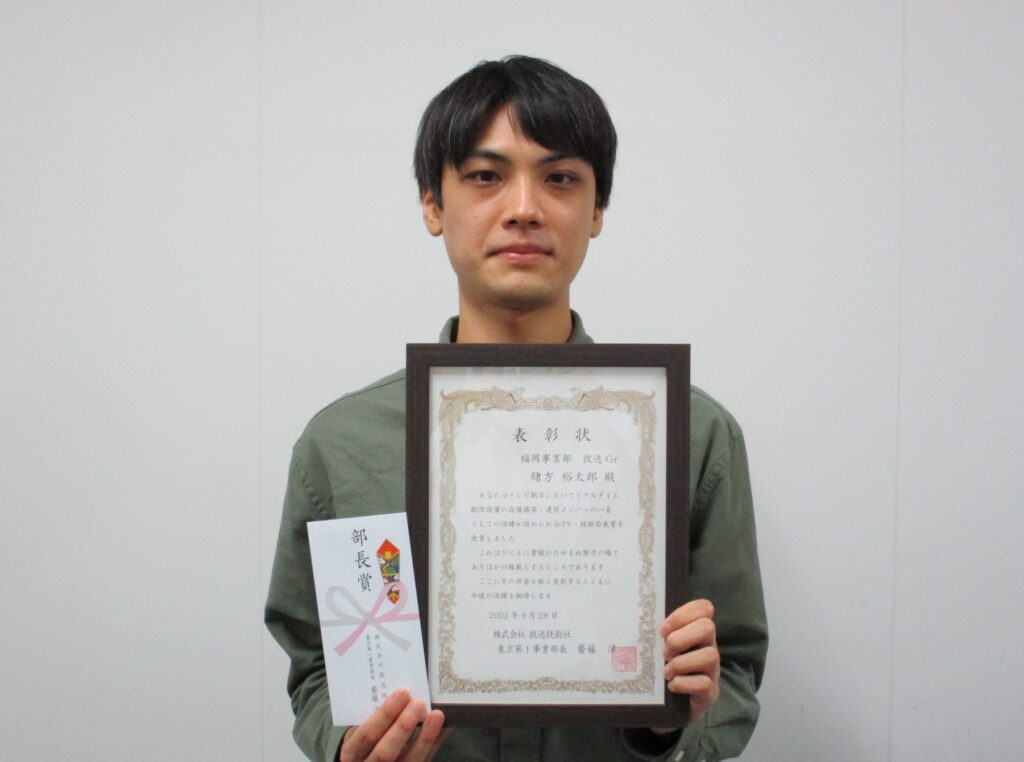 表彰状
福岡事業部 放送Gr
緒方 裕太郎 殿
あなたはテレビ朝日においてリアルタイム
配信設備の設備構築・運用メンバーの一員
としての功績が認められ
技術局長賞を
受賞しました
これはひとえに貴殿のたゆまぬ努力の賜で
ありほかの模範とするところであります
ここにその栄誉を称え表彰するとともに
今後の活躍を期待します
2022年9月28日
株式会社 放送技術社
東京第1事業部長 齋藤
部長賞
株式会社放送技
東京第一事業部長 齋藤